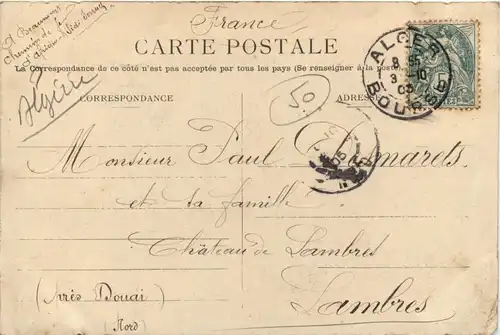 France
CARTE POSTALE
La Correspondance de ce côté n'est pas acceptée par tous les pays (Se renseigner à la poste)
Algérie
CORRESPONDANCE
ADRESSE
50
ALGER
8 55
3 10
05
BOURSE
5
Monsieur Paul Demarets
et sa famille
Château de Lambres
Lambres
(Près Douai)
(Nord)